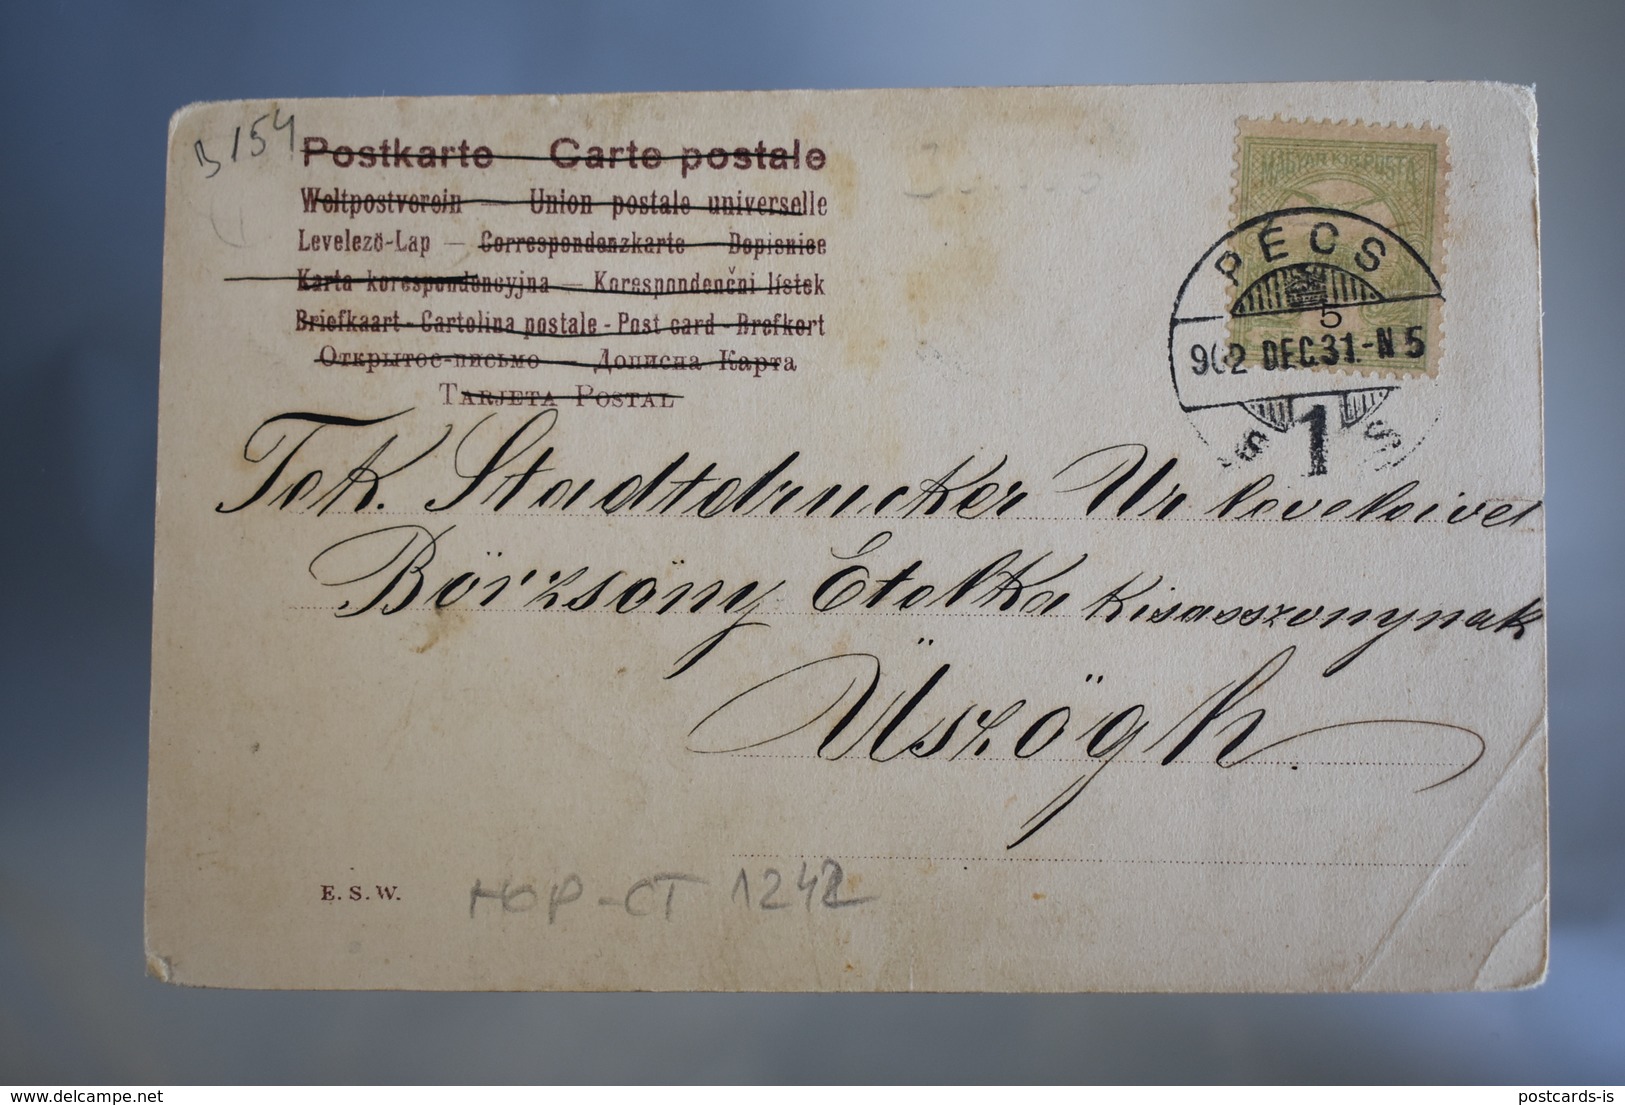 B 154
Postkarte Carte postale
Weltpostverein — Union postale universelle
Levelező-Lap — Correspondenzkarte — Dopisnice
Karta korespondencyjna — Korespondenčni lístek
Briefkaart - Cartolina postale - Post card - Brefkort
Открытое-письмо — Дописна Карта
TARJETA POSTAL
MAGYAR KIR. POSTA
PÉCS
5
902 DEC. 31.-N 5
1
Tek. Stadtdrucker Ur leveleivel
Börzsöny Etelka kisasszonynak
Üszögh.
E. S. W.
HOP-CT 1242
Delcampe.net
postcards-is